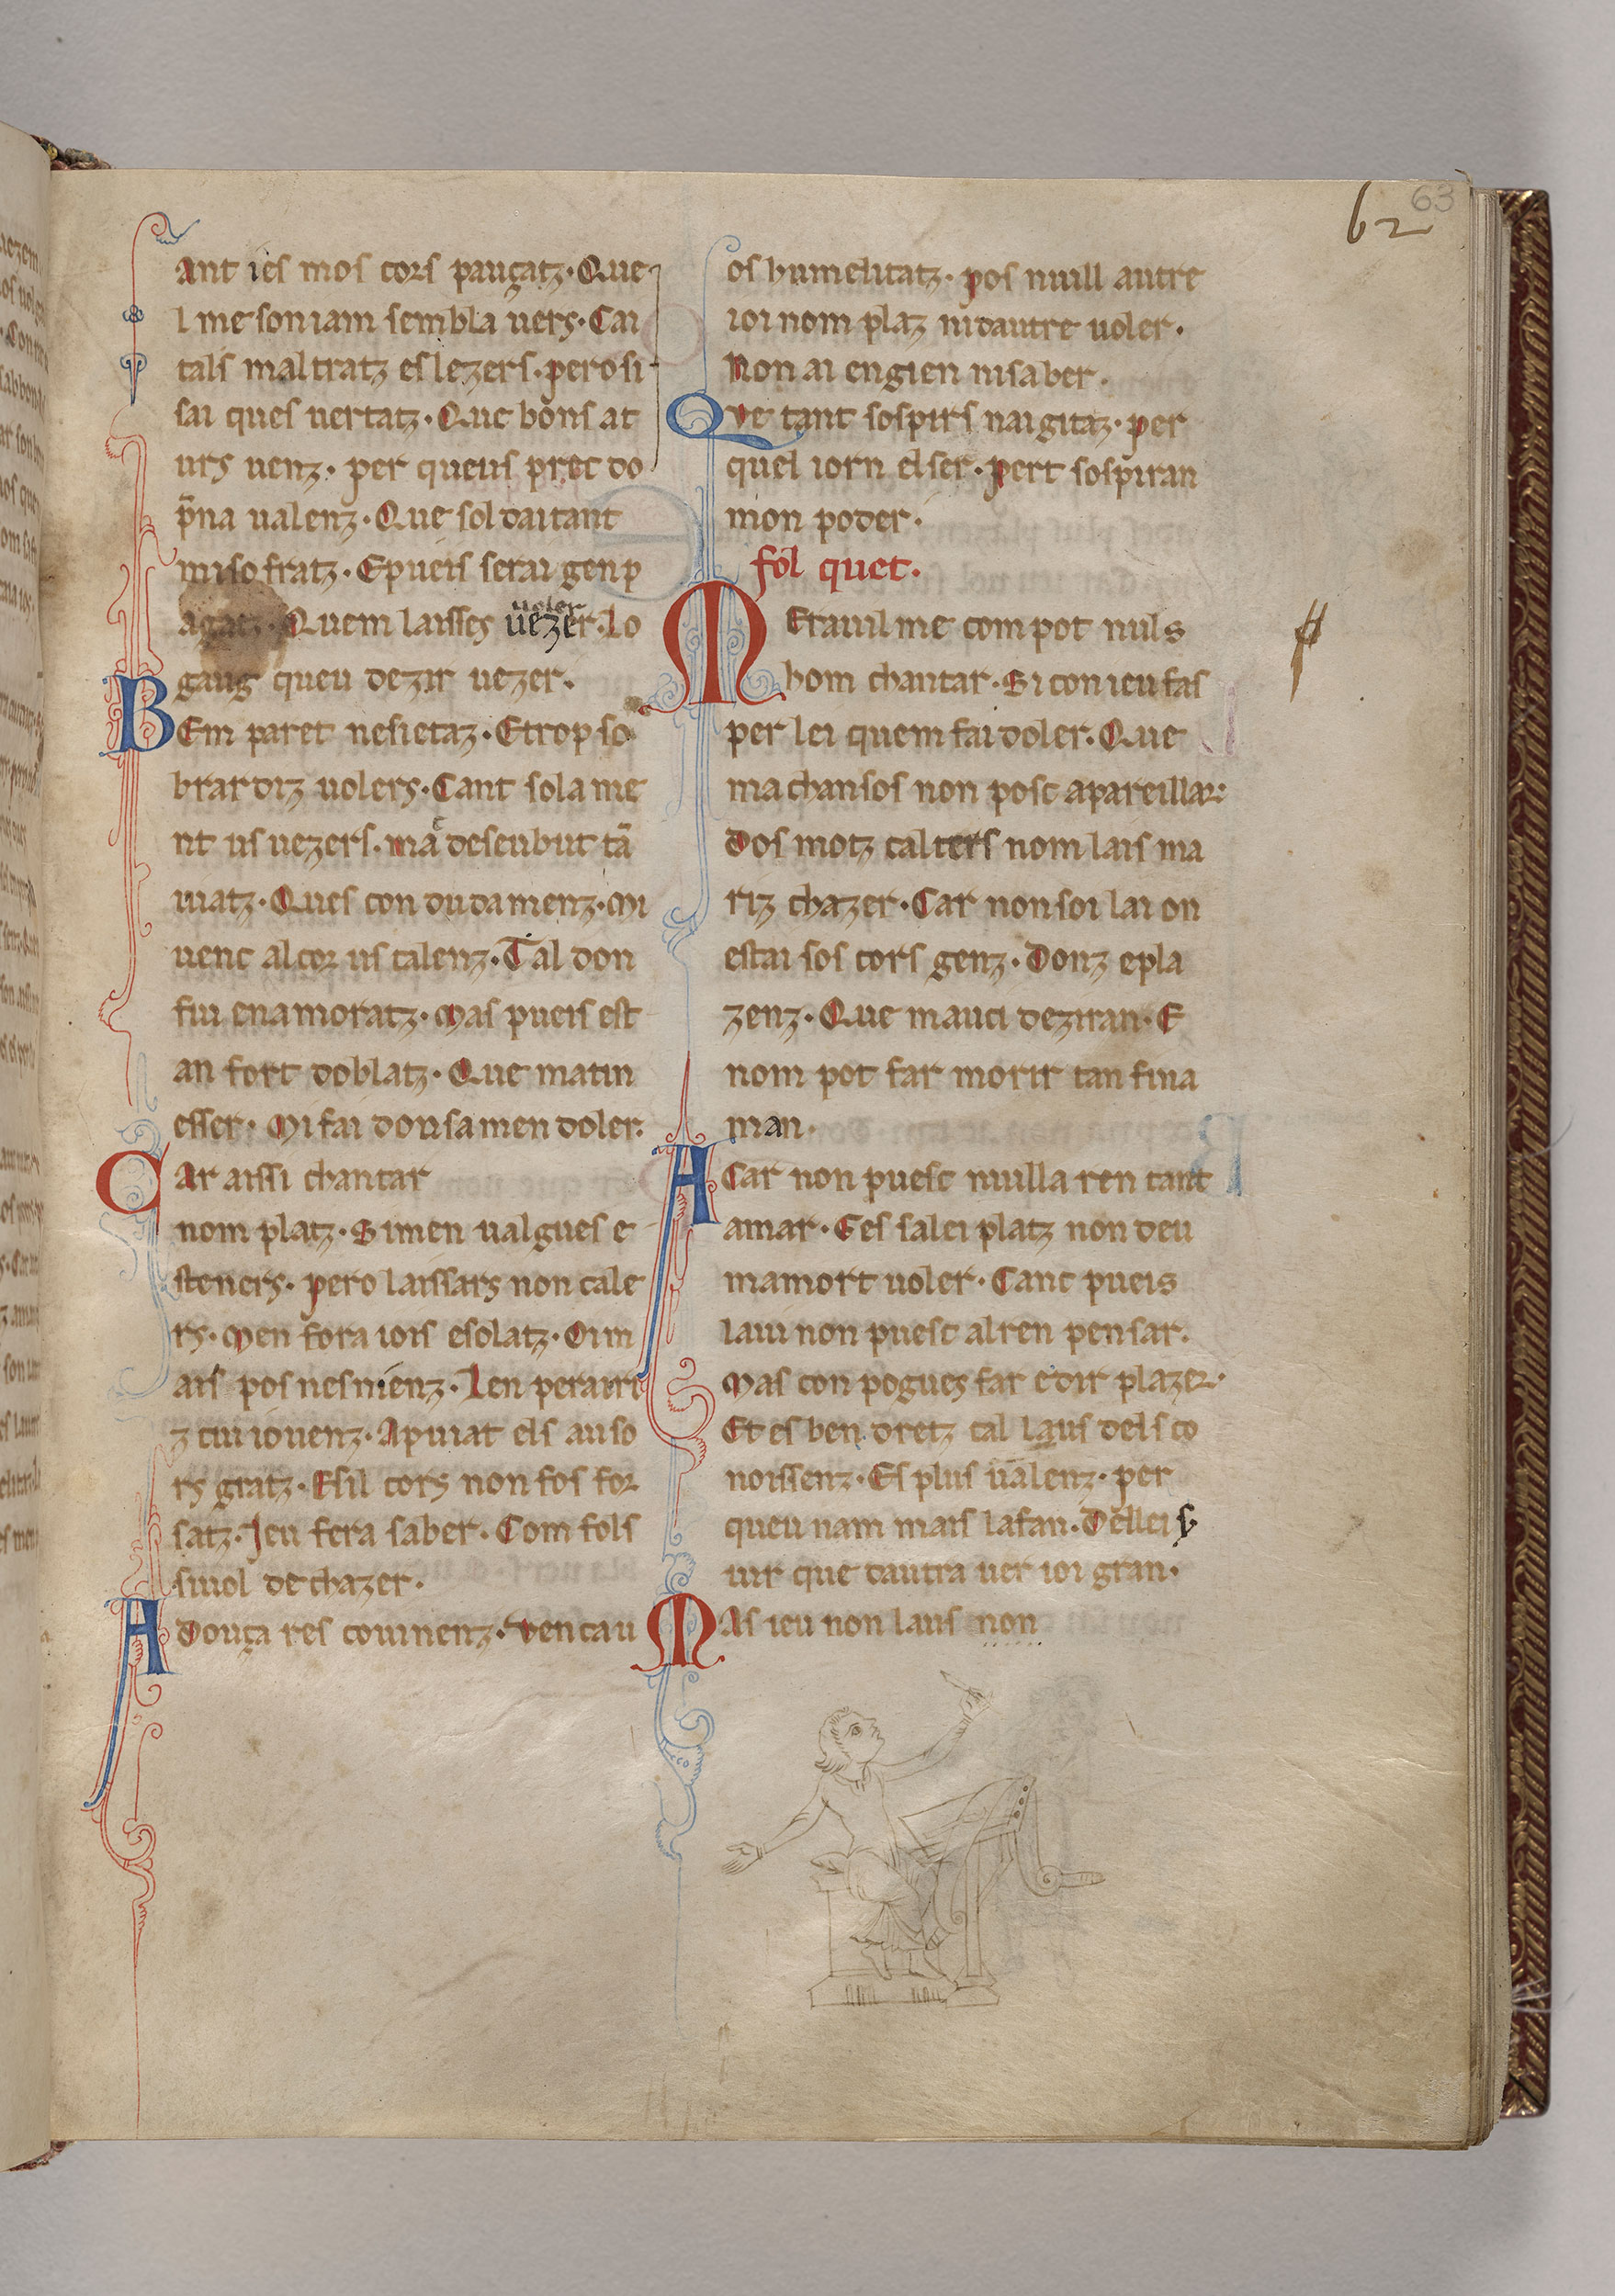 62
63
ant ies mos cors pauçatz · Que
l me son iam sembla uers · Cai
tals maltratz es lezers · pero si
sai ques uertatz · Que bons at
urs uenz · per queus prec do
p̄na ualenz · Que sol daitant
mi sofratz · E pueis serai gen p
agatz · Quem laisses uezer · Lo
uoler
gaug queu dezir uezer ·
BEm paret nesietaz · E trop so
brardiz uolers · Cant sola me
nt us uezers · ma deseubut tā
uiatz · Ques con dudamenz · Mi
uenc al cor us talenz · Tal don
fui enamoratz · Mas pueis est
an fort doblatz · Que matin
esser · Mi fai dousamen doler ·
CAr aissi chantar
nom platz · Si men ualgues e
steners · pero laissars non cale
rs · Men fora iois esolatz · Oim
ais pos nes nienz · Len perairi
z cui iouenz · Apuiat els auso
rs gratz · E sil cors non fos for
satz · Ieu fera saber · Com fols
si uol dechazer ·
A Douça res couinenz · Vencau
os humelitatz · pos nuill autre
ioi nom plaz ni dautre uoler ·
Non ai engien ni saber ·
QVe tant sospirs nai gitaz · per
quel iorn el ser · pert sospiran
mon poder ·
fol quet ·
MErauil me com pot nuls
hom chantar · Si con ieu fas
per lei quem fai doler · Que
ma chansos non posc apareillar ·
Dos motz cal ters nom lais ma
riz chazer · Car non soi lai on
estai sos cors genz · Donz e pla
zenz · Que mauci deziran · E
nom pot far morir tan fina
man ·
A Car non puesc nuilla ren tant
amar · E es salei platz non deu
ma mort uoler · Canc pueis
laui non puesc alren pensar ·
Mas con pogues far e dir plazer ·
Et es ben dretz cal laus dels co
noissenz · Es plus ualenz · per
queu nam mais lafan · Dellei s
uir que dautra uer ioi gran ·
MAs ieu non laus non